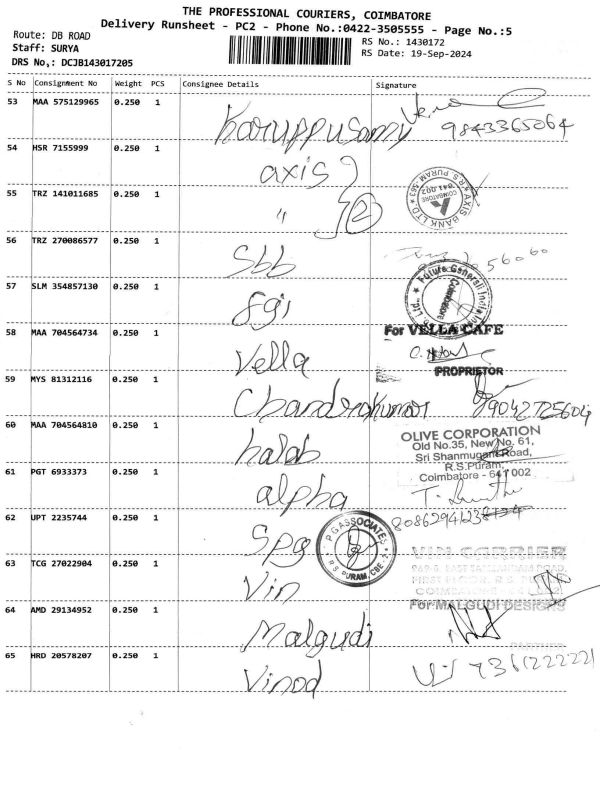 THE PROFESSIONAL COURIERS, COIMBATORE
Delivery Runsheet - PC2 - Phone No.:0422-3505555 - Page No.:5
Route: DB ROAD
Staff: SURYA
DRS No,: DCJB143017205
RS No.: 1430172
RS Date: 19-Sep-2024
S No Consignment No Weight PCS Consignee Details Signature
53 MAA 575129965 0.250 1 Karuppusamy 9843365064
54 HSR 7155999 0.250 1 axis
55 TRZ 141011685 0.250 1 " 2
AXIS BANK LTD R.S. PURAM, 563 COIMBATORE 641 002
56 TRZ 270086577 0.250 1 Sbb
57 SLM 354857130 0.250 1 fgi
Future Generali India Coimbatore
58 MAA 704564734 0.250 1 Vella
For VELLA CAFE
PROPRIETOR
59 MYS 81312116 0.250 1 Chandrakumar 9042725604
60 MAA 704564810 0.250 1 halab
OLIVE CORPORATION
Old No.35, New No. 61,
Sri Shanmugam Road,
R.S.Puram,
Coimbatore - 641 002
61 PGT 6933373 0.250 1 alpha
62 UPT 2235744 0.250 1 Spg
P G ASSOCIATES R.S. PURAM, CBE
63 TCG 27022904 0.250 1 Vin
VIN CARRIER
FIRST FLOOR, R.S.
COIMBATORE
64 AMD 29134952 0.250 1 Malgudi
For MALGUDI DESIGNS
PARTNER
65 HRD 20578207 0.250 1 Vinod